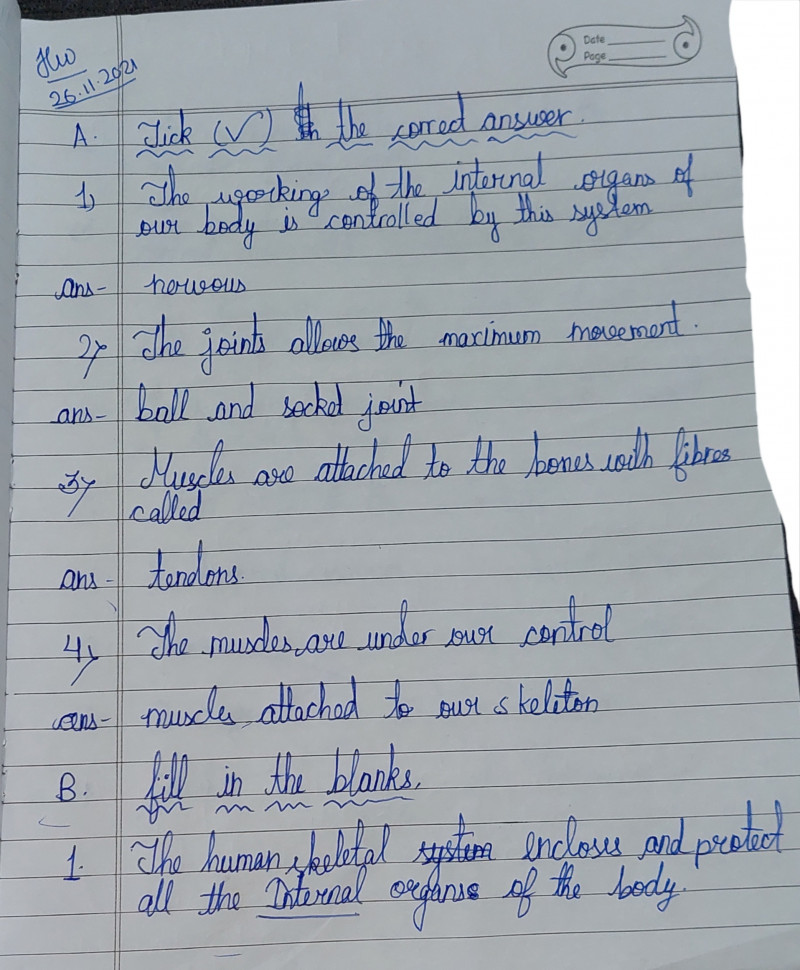 HW
26.11.2021
Date
Page
A. Tick (✓) the correct answer.
1) The working of the internal organs of
our body is controlled by this system
ans- nervous
2) The joints allows the maximum movement.
ans- ball and socket joint
3) Muscles are attached to the bones with fibres
called
ans- tendons.
4) The muscles are under our control
ans- muscles attached to our skeliton
B. fill in the blanks.
1. The human skeletal system encloses and protect
all the Internal organs of the body.